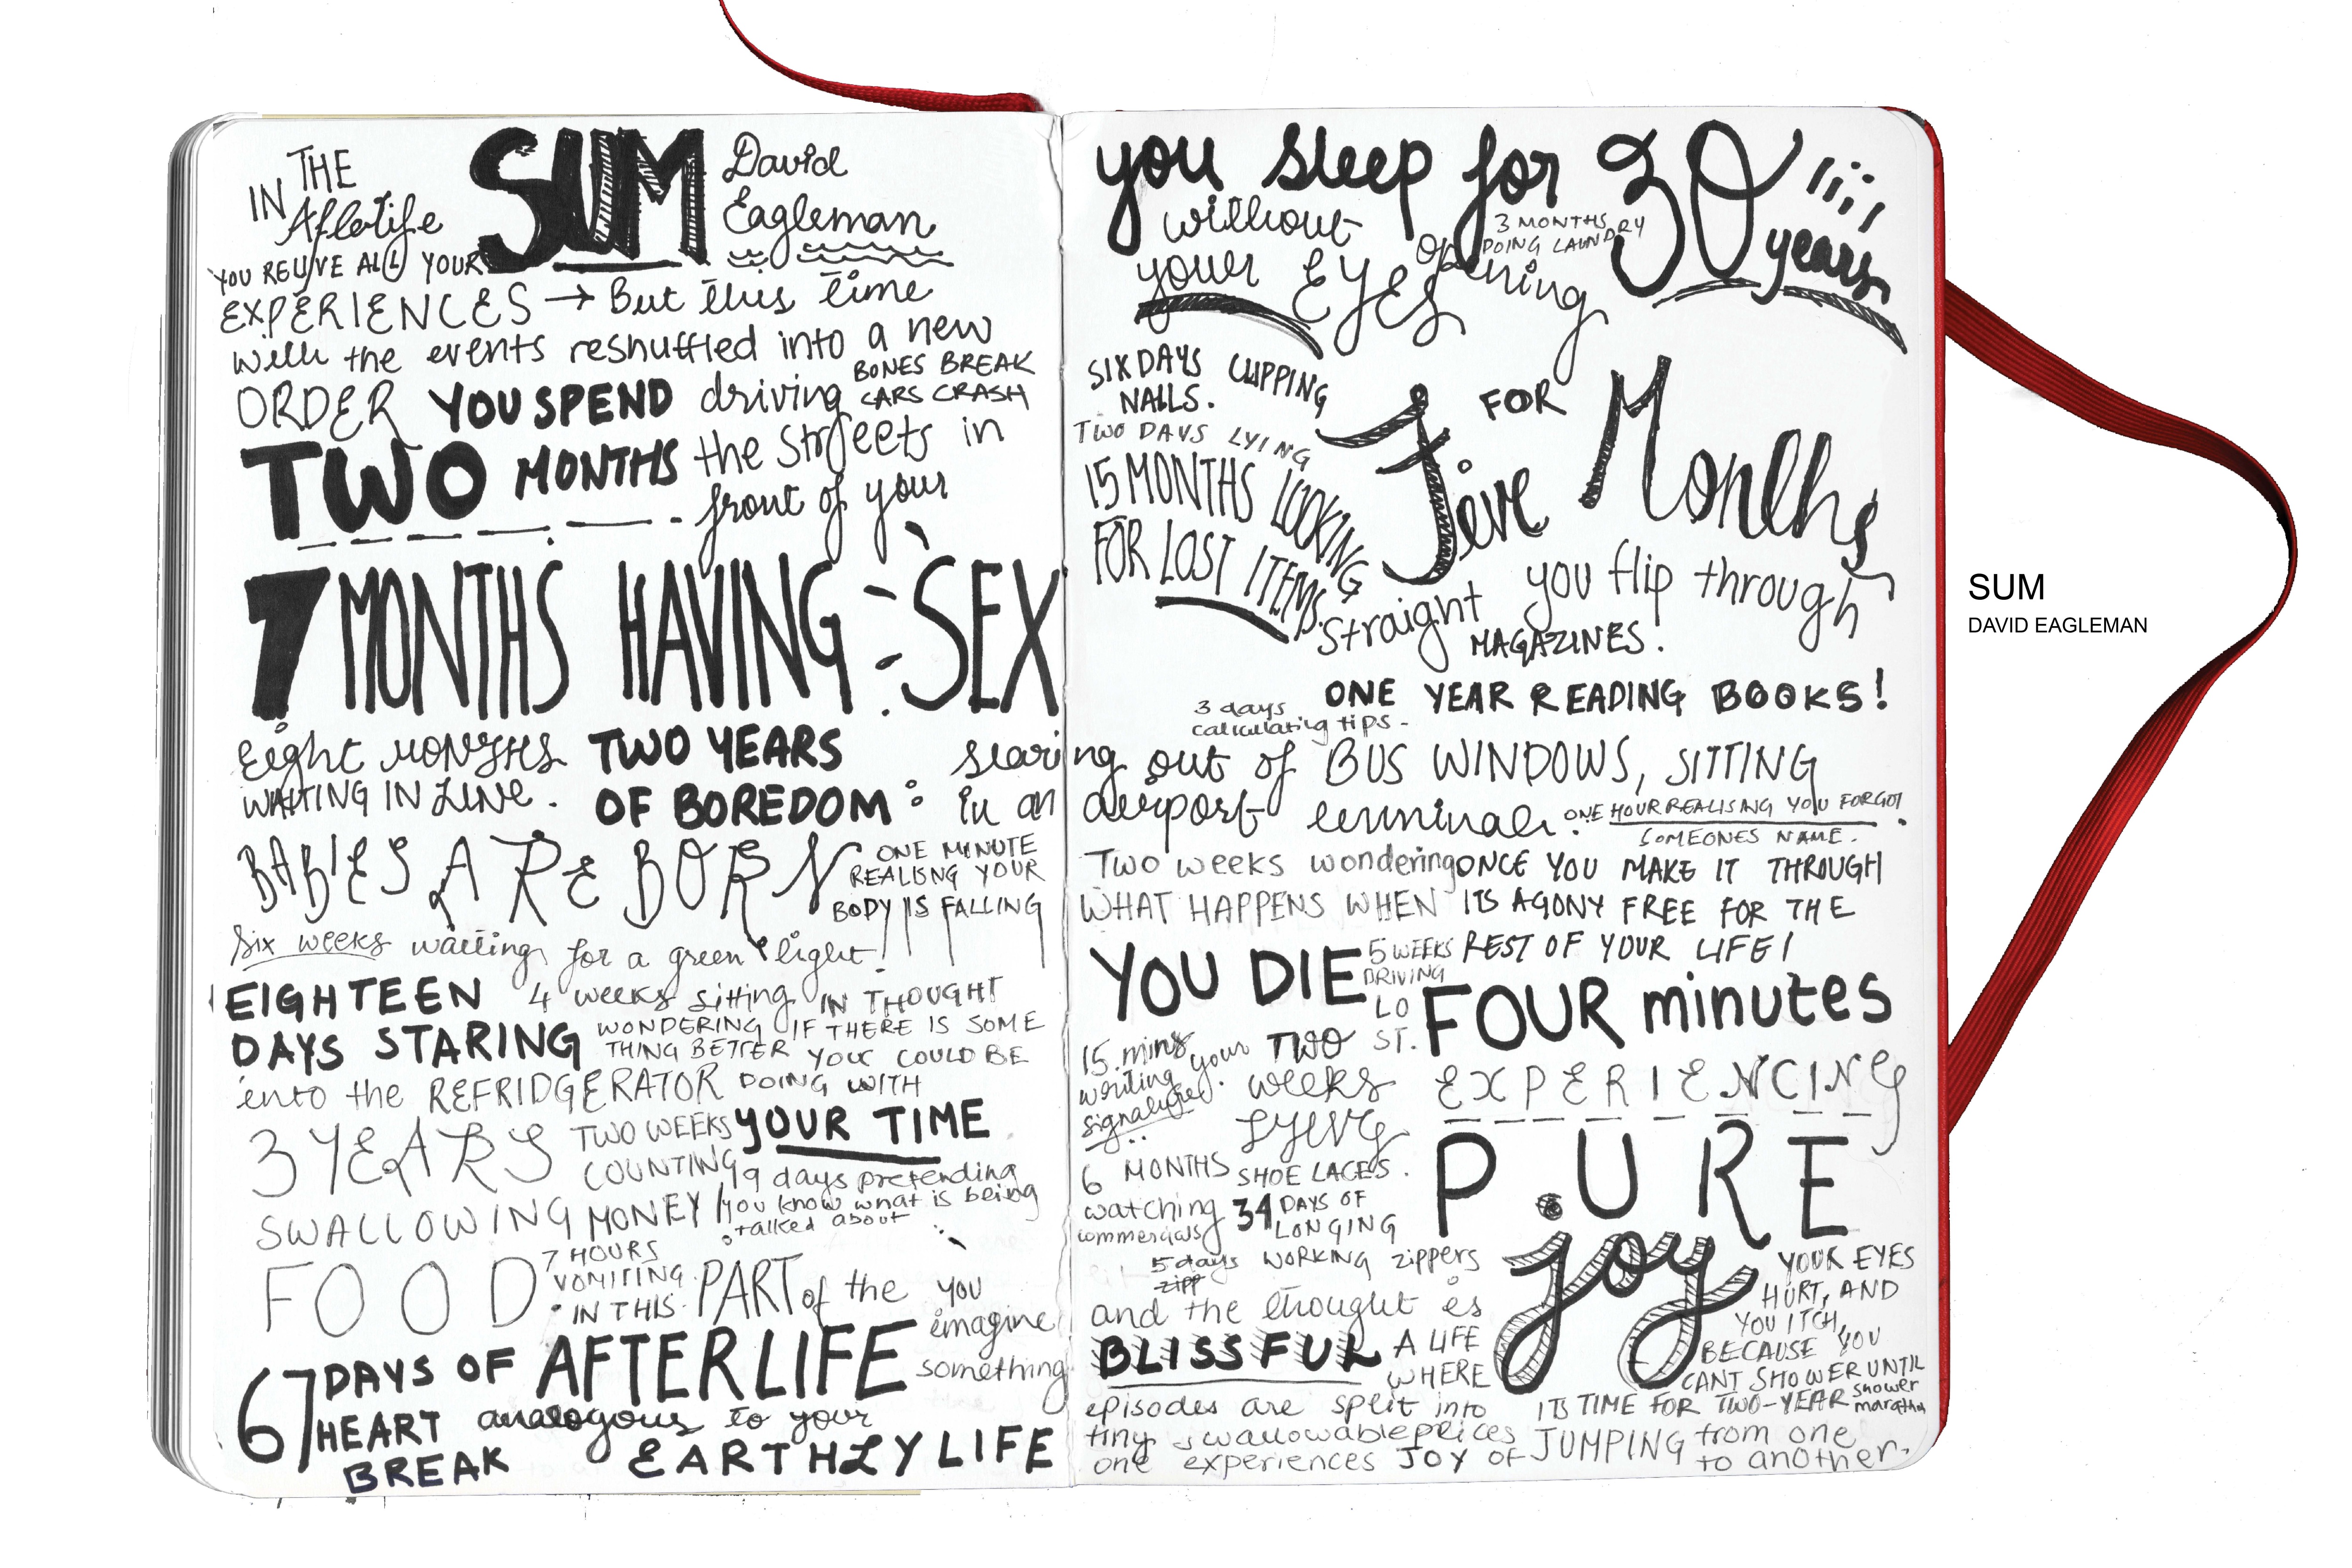 IN THE
Afterlife
SUM
David
Eagleman
YOU RELIVE ALL YOUR
EXPERIENCES → But this time
with the events reshuffled into a new
ORDER YOU SPEND driving
BONES BREAK
CARS CRASH
TWO MONTHS the streets in
front of your
7 MONTHS HAVING SEX
Eight MONTHS
WAITING IN LINE.
TWO YEARS
OF BOREDOM: staring out of BUS WINDOWS, SITTING
in an airport terminal.
BABIES ARE BORN
ONE MINUTE
REALISNG YOUR
BODY IS FALLING
Six weeks waiting for a green light!
EIGHTEEN
DAYS STARING
into the REFRIDGERATOR
4 weeks sitting IN THOUGHT
WONDERING IF THERE IS SOME
THING BETTER YOU COULD BE
DOING WITH
YOUR TIME
3 YEARS
SWALLOWING
FOOD
TWO WEEKS
COUNTING
MONEY
19 days pretending
you know what is being
talked about
7 HOURS
VOMITING.
IN THIS PART of the
AFTERLIFE
you
imagine
something
67 DAYS OF
HEART
BREAK
analogous to your
EARTHLY LIFE
you sleep for 30 years
without
opening
your EYES
3 MONTHS
DOING LAUNDRY
SIX DAYS CLIPPING
NAILS.
TWO DAYS LYING
15 MONTHS LOOKING
FOR LOST ITEMS.
FOR
Five Months
straight you flip through
MAGAZINES.
ONE YEAR READING BOOKS!
3 days
calculating tips-
ONE HOUR REALISING YOU FORGOT
SOMEONES NAME.
Two weeks wondering
WHAT HAPPENS WHEN
YOU DIE
ONCE YOU MAKE IT THROUGH
ITS AGONY FREE FOR THE
REST OF YOUR LIFE!
5 WEEKS
DRIVING
LO
ST.
FOUR minutes
EXPERIENCING
PURE
joy
15 mins
writing your
signature.
TWO
weeks
LYING
SHOE LACES.
6 MONTHS
watching
commercials
34 DAYS OF
LONGING
5 days WORKING zippers
zipp
and the thought is
BLISSFUL
A LIFE
WHERE
episodes are split into
tiny swallowable peices
one experiences JOY OF JUMPING from one
to another.
YOUR EYES
HURT, AND
YOU ITCH,
BECAUSE YOU
CANT SHOWER UNTIL
ITS TIME FOR TWO-YEAR shower
marathon
SUM
DAVID EAGLEMAN